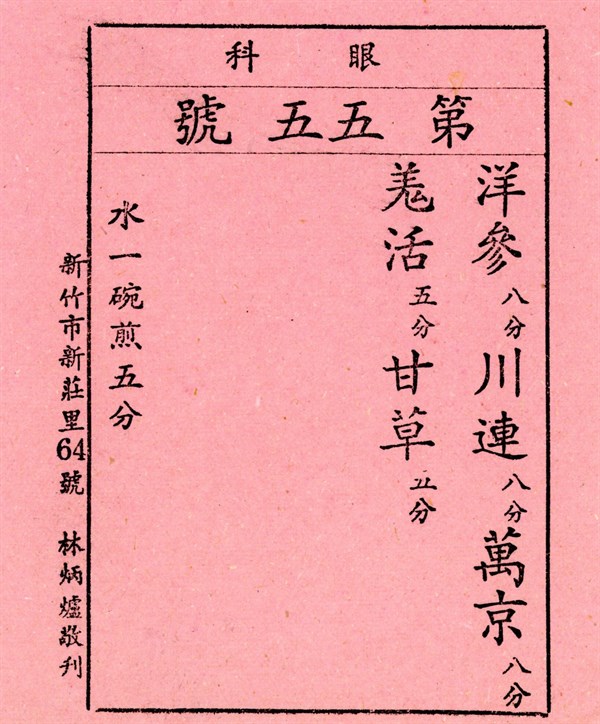 眼科
第五五號
洋參八分川連八分萬京八分
羌活五分甘草五分
水一碗煎五分
新竹市新莊里64號 林炳爐敬刊